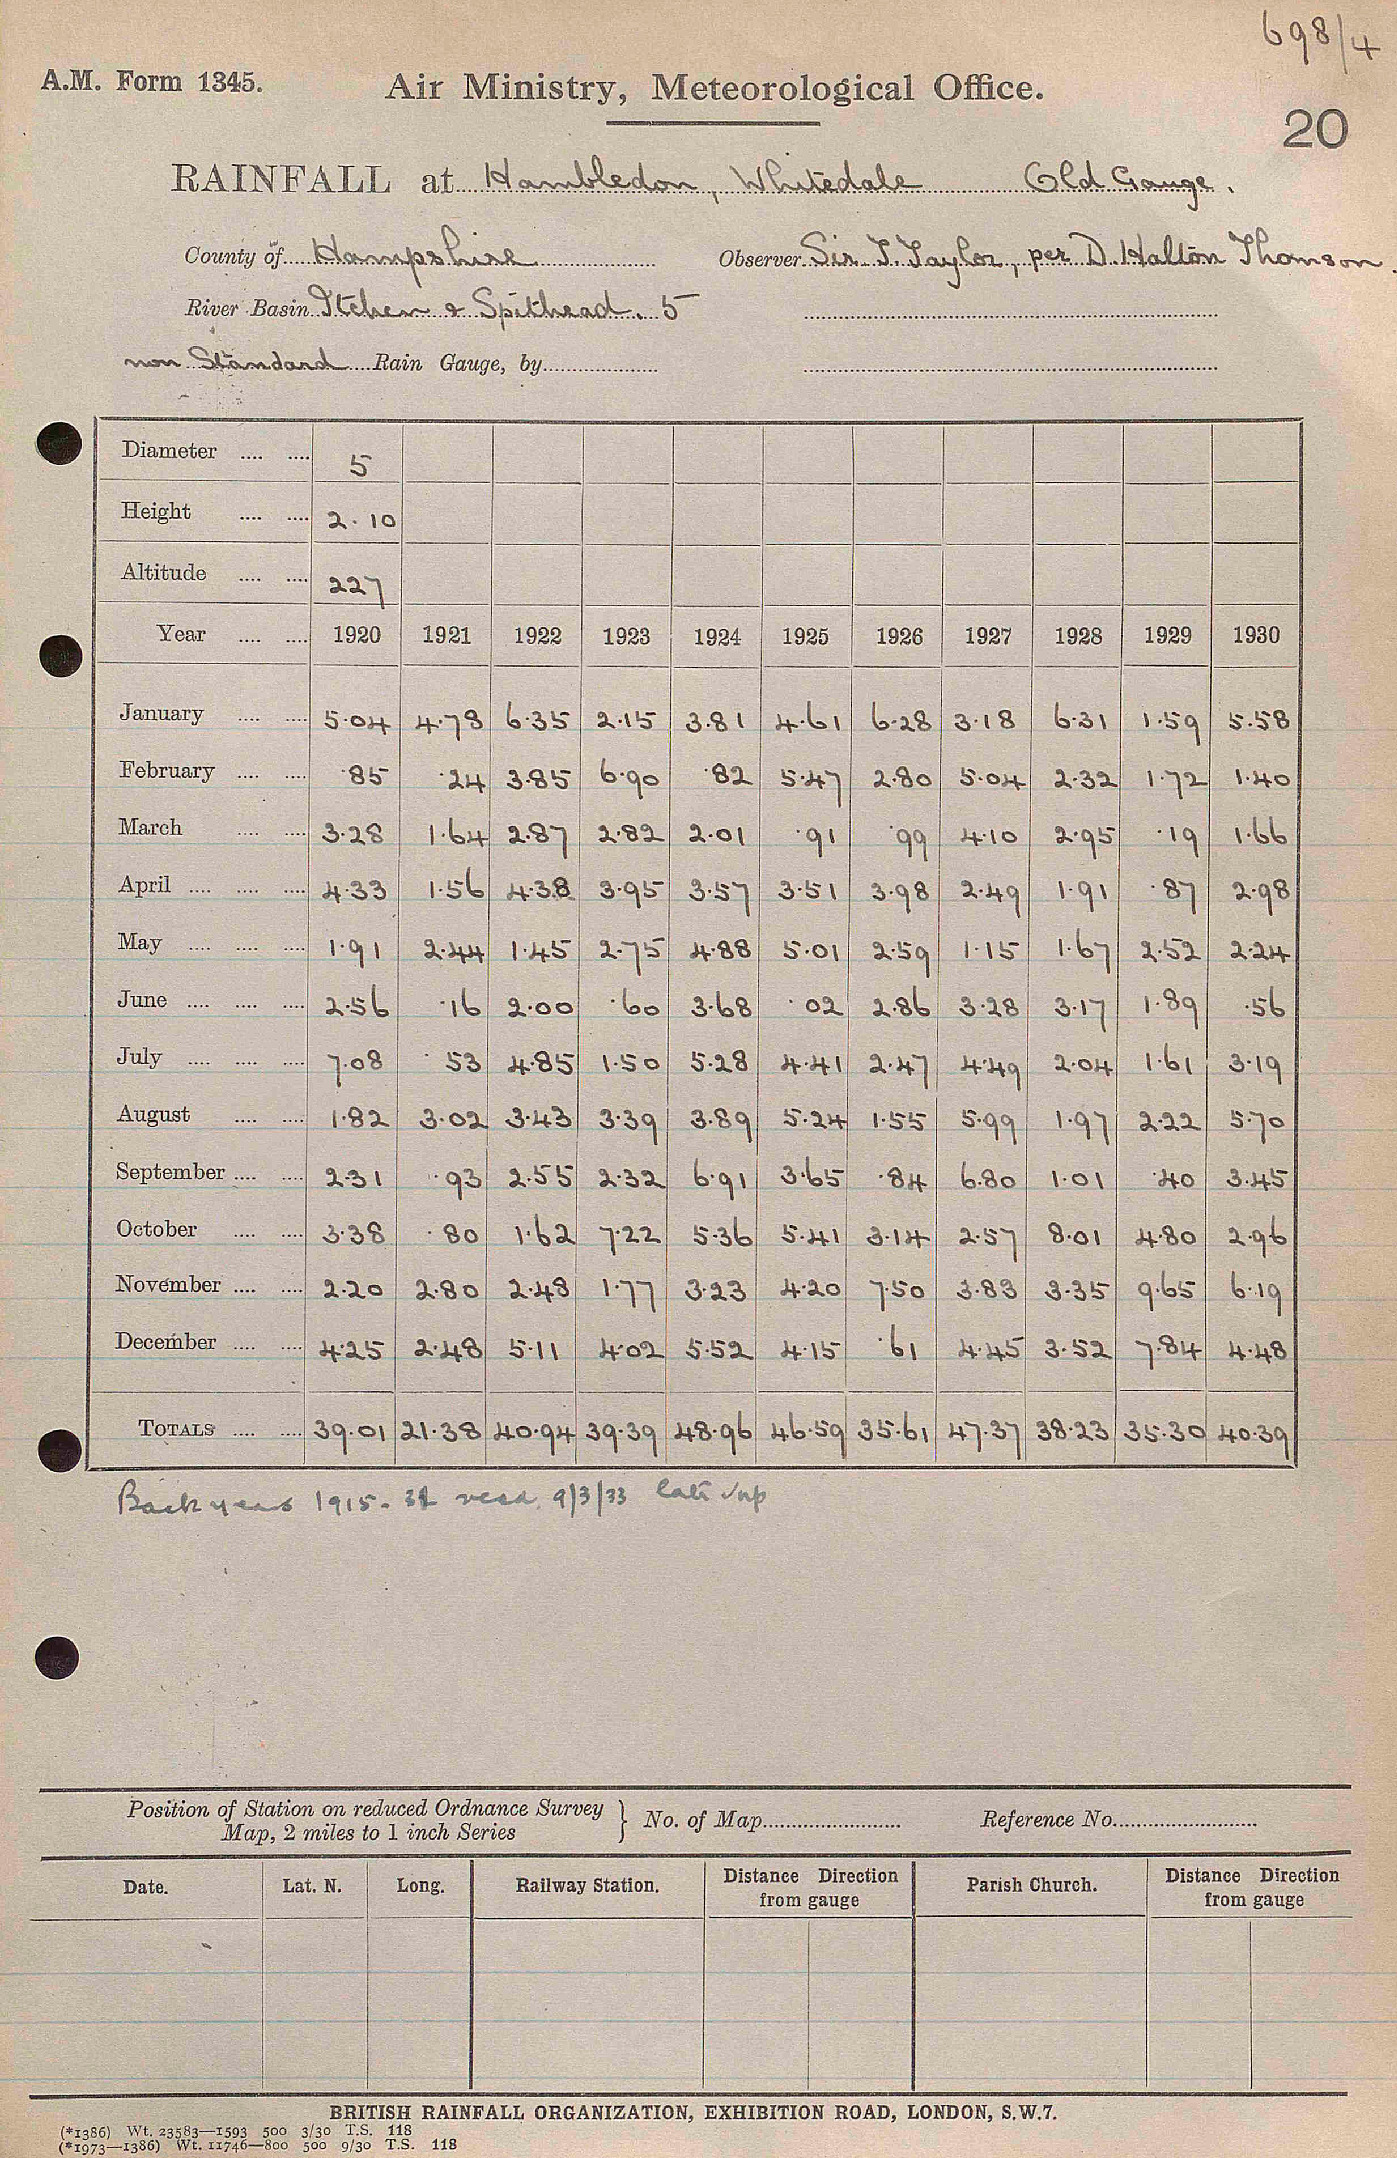 698/4
A.M. Form 1345. Air Ministry, Meteorological Office.
20
RAINFALL at Hambledon, Whitedale Old Gauge.
County of Hampshire Observer Sir J. Taylor, per D. Halton Thomson.
River Basin Itchen & Spithead. 5
non Standard Rain Gauge, by
Diameter 5
Height 2.10
Altitude 227
Year 1920 1921 1922 1923 1924 1925 1926 1927 1928 1929 1930
January 5.04 4.78 6.35 2.15 3.81 4.61 6.28 3.18 6.31 1.59 5.58
February .85 .24 3.85 6.90 .82 5.47 2.80 5.04 2.32 1.72 1.40
March 3.28 1.64 2.87 2.82 2.01 .91 .99 4.10 2.95 .19 1.66
April 4.33 1.56 4.38 3.95 3.57 3.51 3.98 2.49 1.91 .87 2.98
May 1.91 2.44 1.45 2.75 4.88 5.01 2.59 1.15 1.67 2.52 2.24
June 2.56 .16 2.00 .60 3.68 .02 2.86 3.28 3.17 1.89 .56
July 7.08 .53 4.85 1.50 5.28 4.41 2.47 4.49 2.04 1.61 3.19
August 1.82 3.02 3.43 3.39 3.89 5.24 1.55 5.99 1.97 2.22 5.70
September 2.31 .93 2.55 2.32 6.91 3.65 .84 6.80 1.01 .40 3.45
October 3.38 .80 1.62 7.22 5.36 5.41 3.14 2.57 8.01 4.80 2.96
November 2.20 2.80 2.48 1.77 3.23 4.20 7.50 3.83 3.35 9.65 6.19
December 4.25 2.48 5.11 4.02 5.52 4.15 .61 4.45 3.52 7.84 4.48
TOTALS 39.01 21.38 40.94 39.39 48.96 46.59 35.61 47.37 38.23 35.30 40.39
Back years 1915- recd 9/3/33
Position of Station on reduced Ordnance Survey
Map, 2 miles to 1 inch Series } No. of Map Reference No.
Date. Lat. N. Long. Railway Station. Distance Direction from gauge Parish Church. Distance Direction from gauge
BRITISH RAINFALL ORGANIZATION, EXHIBITION ROAD, LONDON, S.W.7.
(*1386) Wt. 23583—1593 500 3/30 T.S. 118
(*1973—1386) Wt. 11746—800 500 9/30 T.S. 118